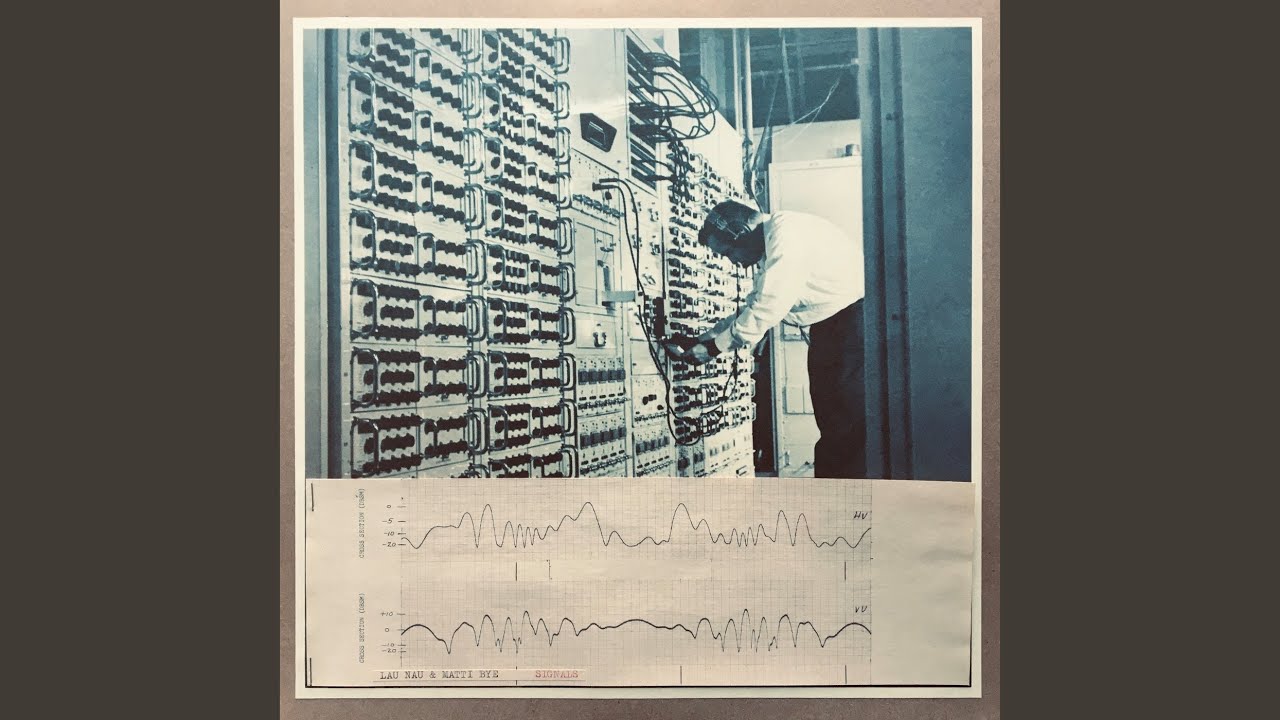 CROSS SECTION (DBSM)
0
-5
-10
-20
HV
CROSS SECTION (DBSM)
+10
0
-10
-20
VV
LAU NAU & MATTI BYE SIGNALS